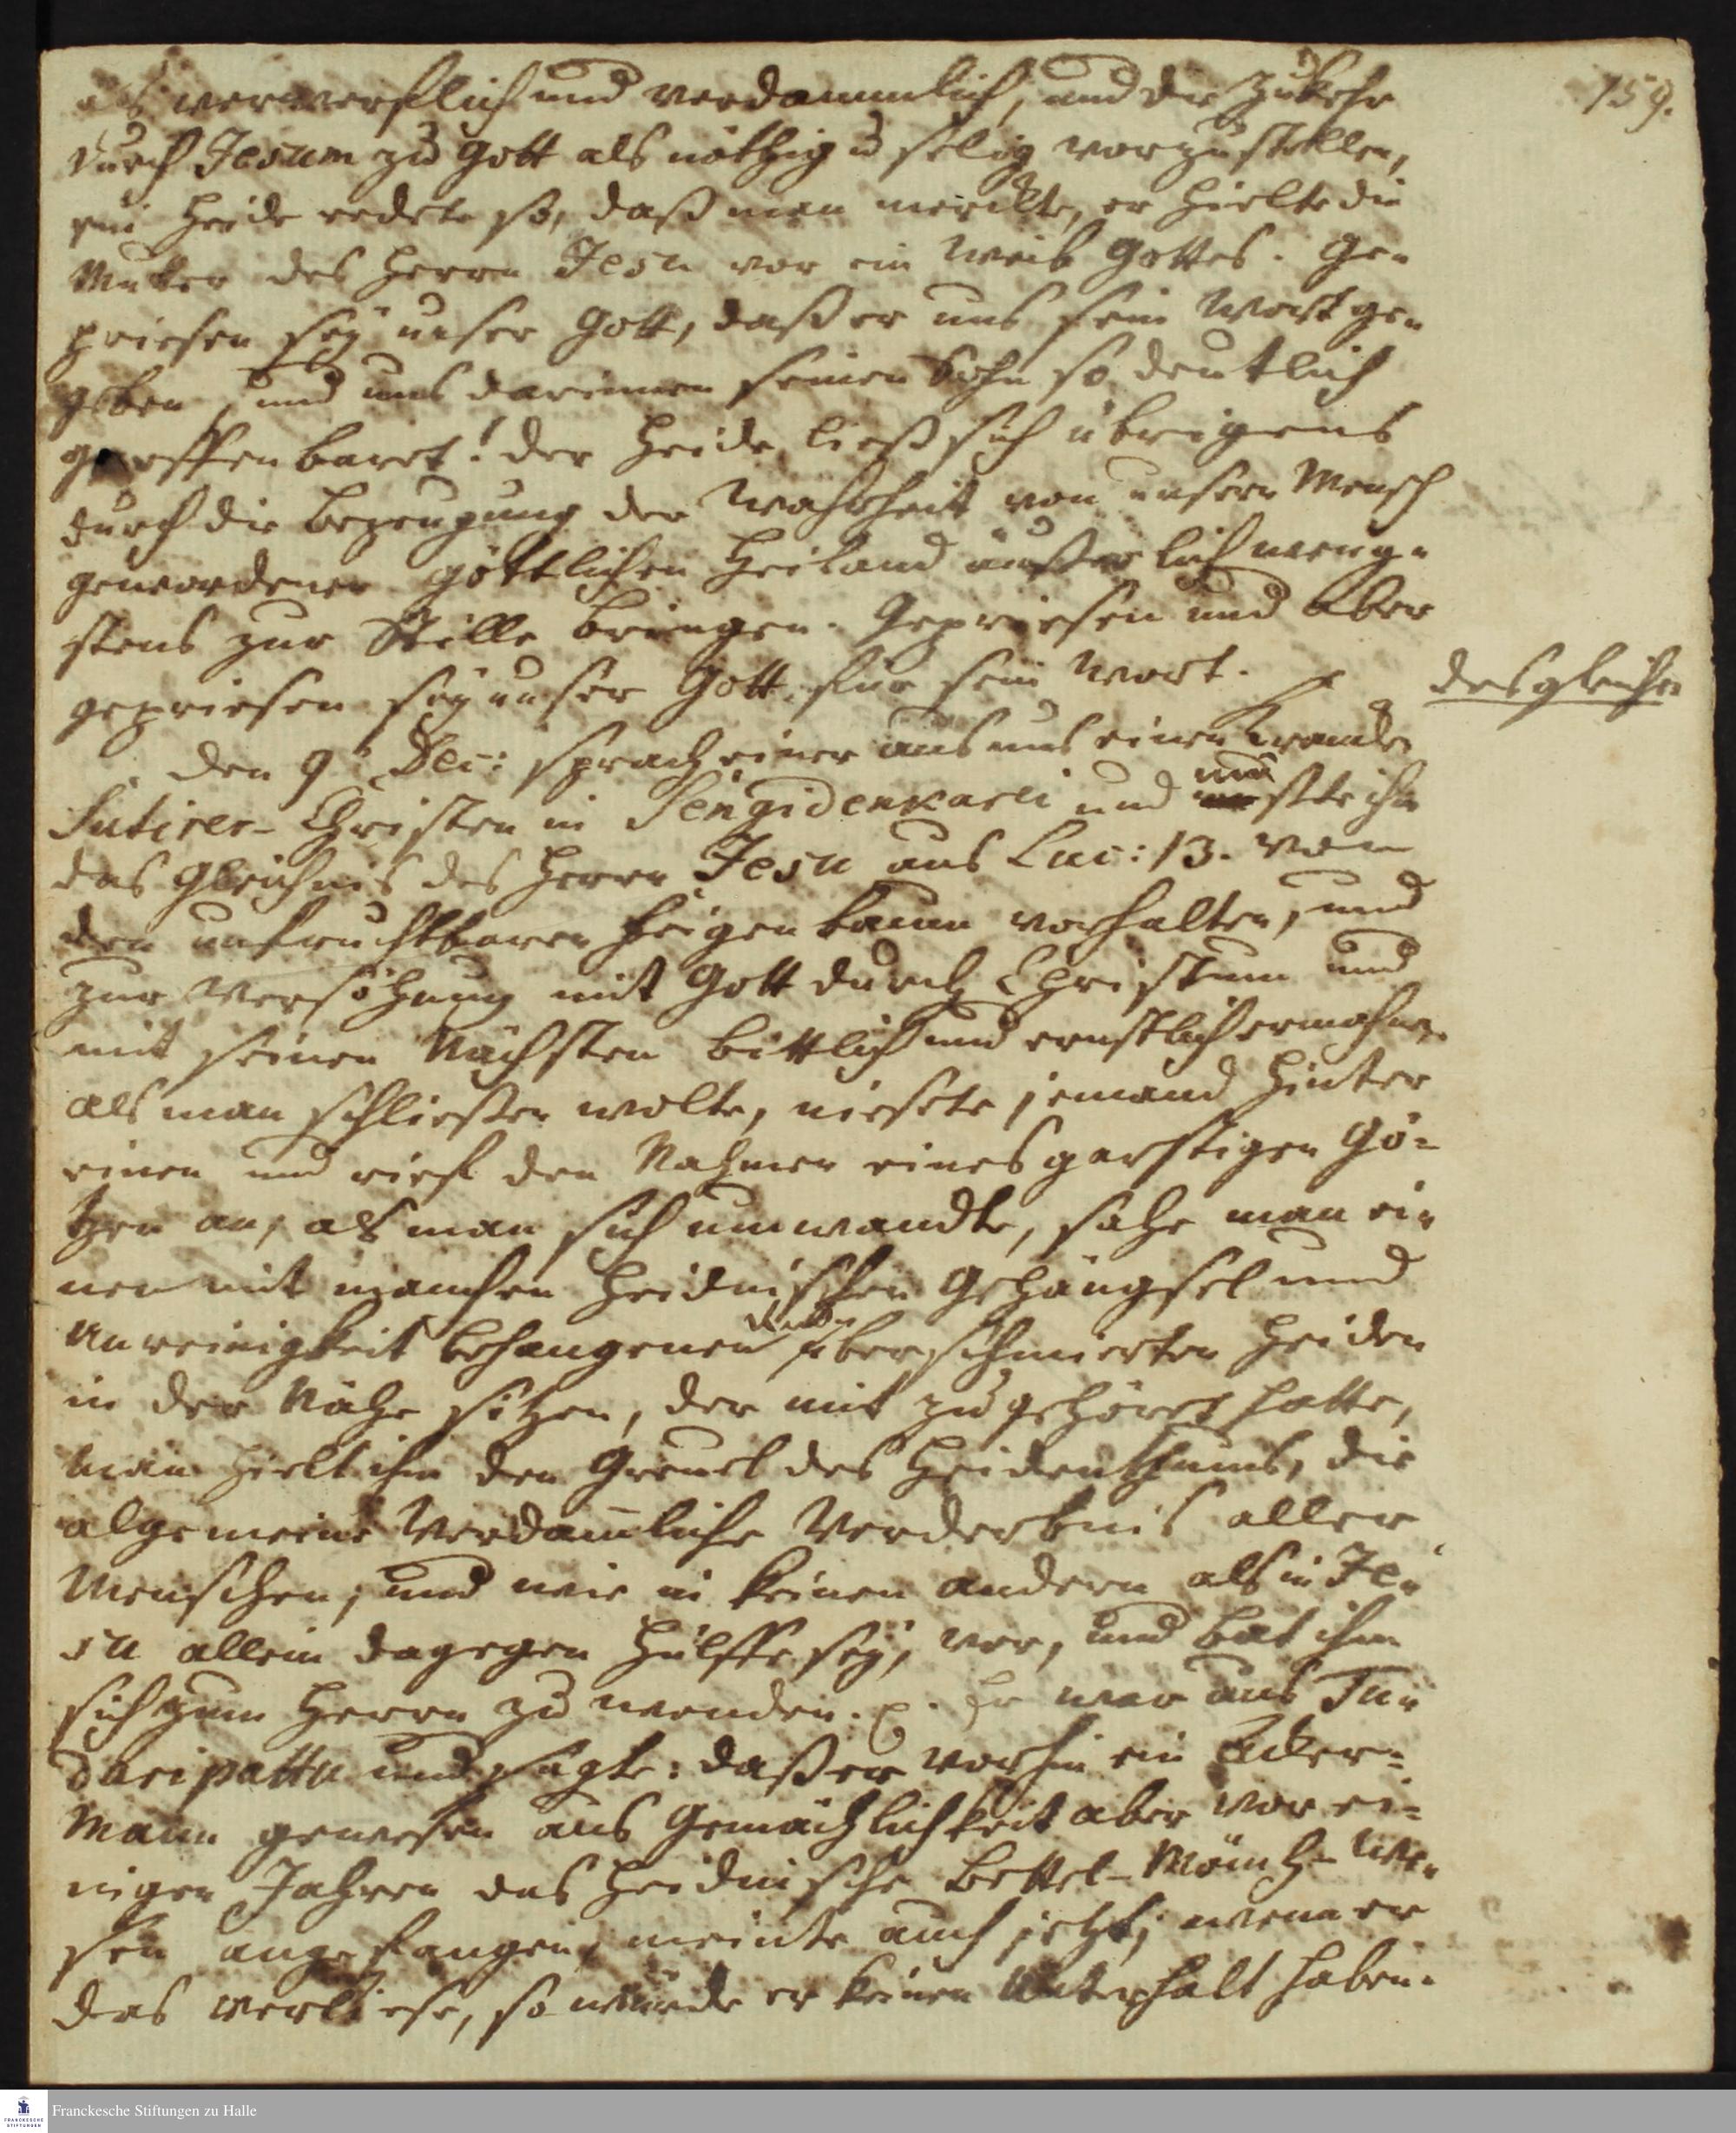 159.
als verwerflich und verdammlich, und die Zukehr
durch Jesum zu Gott als nöthig u selig vorzustellen,
ein Heide redete so, daß man merckte, er hielte die
Mutter des Herrn Jesu vor ein Weib Gottes. Ge-
priesen sey unser Gott, daß er uns sein Wort ge-
geben, und uns darinnen seinen Sohn so deutlich
geoffenbaret! Der Heide ließ sich übrigens
durch die Bezeugung der Wahrheit von unsern Mensch
gewordenen göttlichen Heiland äußerlich wenig-
stens zur Stille bringen. Gepriesen und aber
gepriesen sey unser Gott für sein Wort.
desgleichen
Den 9t Dec: sprach einer aus uns einen krancken
Sutirer-Christen in Sengidenkarei und muste ihm
das Gleichnis des Herrn Jesu aus Luc: 13. von
den unfruchtbaren Feigenbaum vorhalten, und
zur Versöhnung mit Gott durch Christum und
mit seinen Nächsten bittlich und ernstlich ermahnen.
Als man schließen wolte, niesete jemand hinter
einen und rief den Nahmen eines garstigen Gö-
tzen an, als man sich umwandte, sahe man ei-
nen mit manchen heidnischen Gehängsel und
Unreinigkeit behangenen überschmierten Heiden
in der Nähe sitzen, der mit zugehöret hatte,
man hielt ihm den Greuel des Heidenthums, die
algemeine verdamliche Verderbnis aller
Menschen, und wie in keinen andern als in Je-
su allein dagegen Hülffe sey, vor, und bat ihn
sich zum Herrn zu wenden. p. Er war aus Tu-
daripattu und sagte: daß er vorhin ein Acker-
Mann gewesen aus Gemächlichkeit aber vor ei-
nigen Jahren das heidnische Bettel-Mönch-We-
sen angefangen, meinte auch jetzt, wenn er
das verliese, so würde er keinen Unterhalt haben.
Franckesche Stiftungen zu Halle